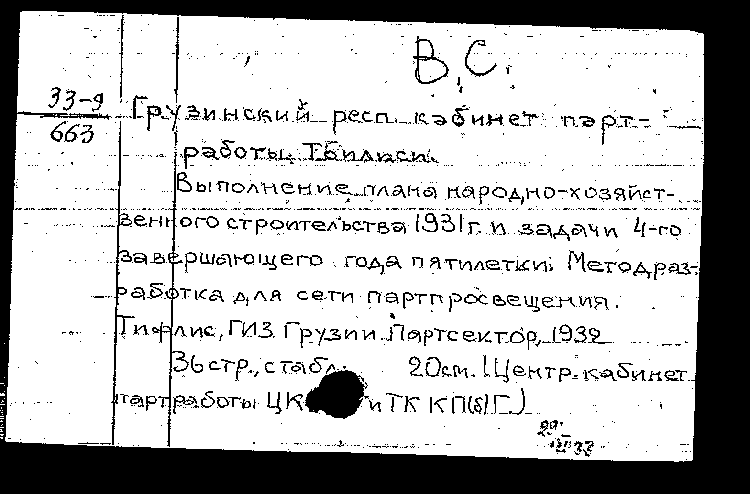 В.С.
33-9
663
Грузинский респ. кабинет парт-
работы. Тбилиси.
Выполнение плана народно-хозяйст-
венного строительства 1931 г. и задачи 4-го
завершающего года пятилетки. Метод раз-
работка для сети партпросвещения.
Тифлис, ГИЗ Грузии. Партсектор, 1932
36 стр., с табл. 20 см. (Центр. кабинет
партработы ЦК и ТК КП(б)Г.)
33